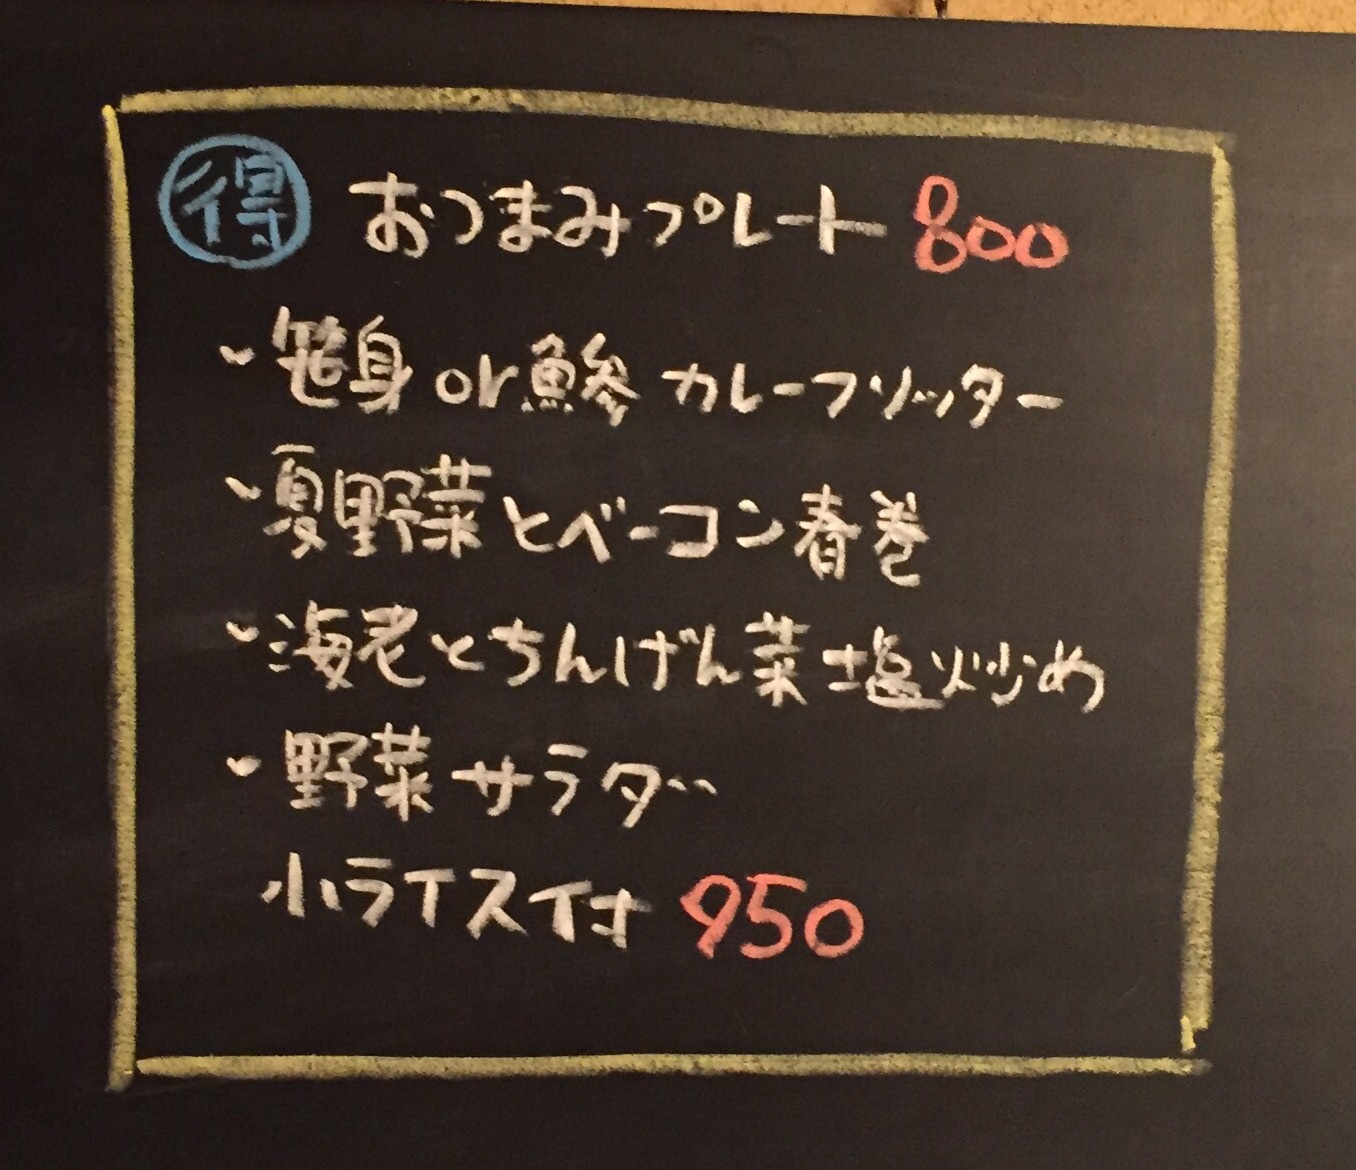 得 おつまみプレート 800
・笹身 or 鯵 カレーフリッター
・夏野菜とベーコン春巻
・海老とちんげん菜塩炒め
・野菜サラダ
小ライス付 950